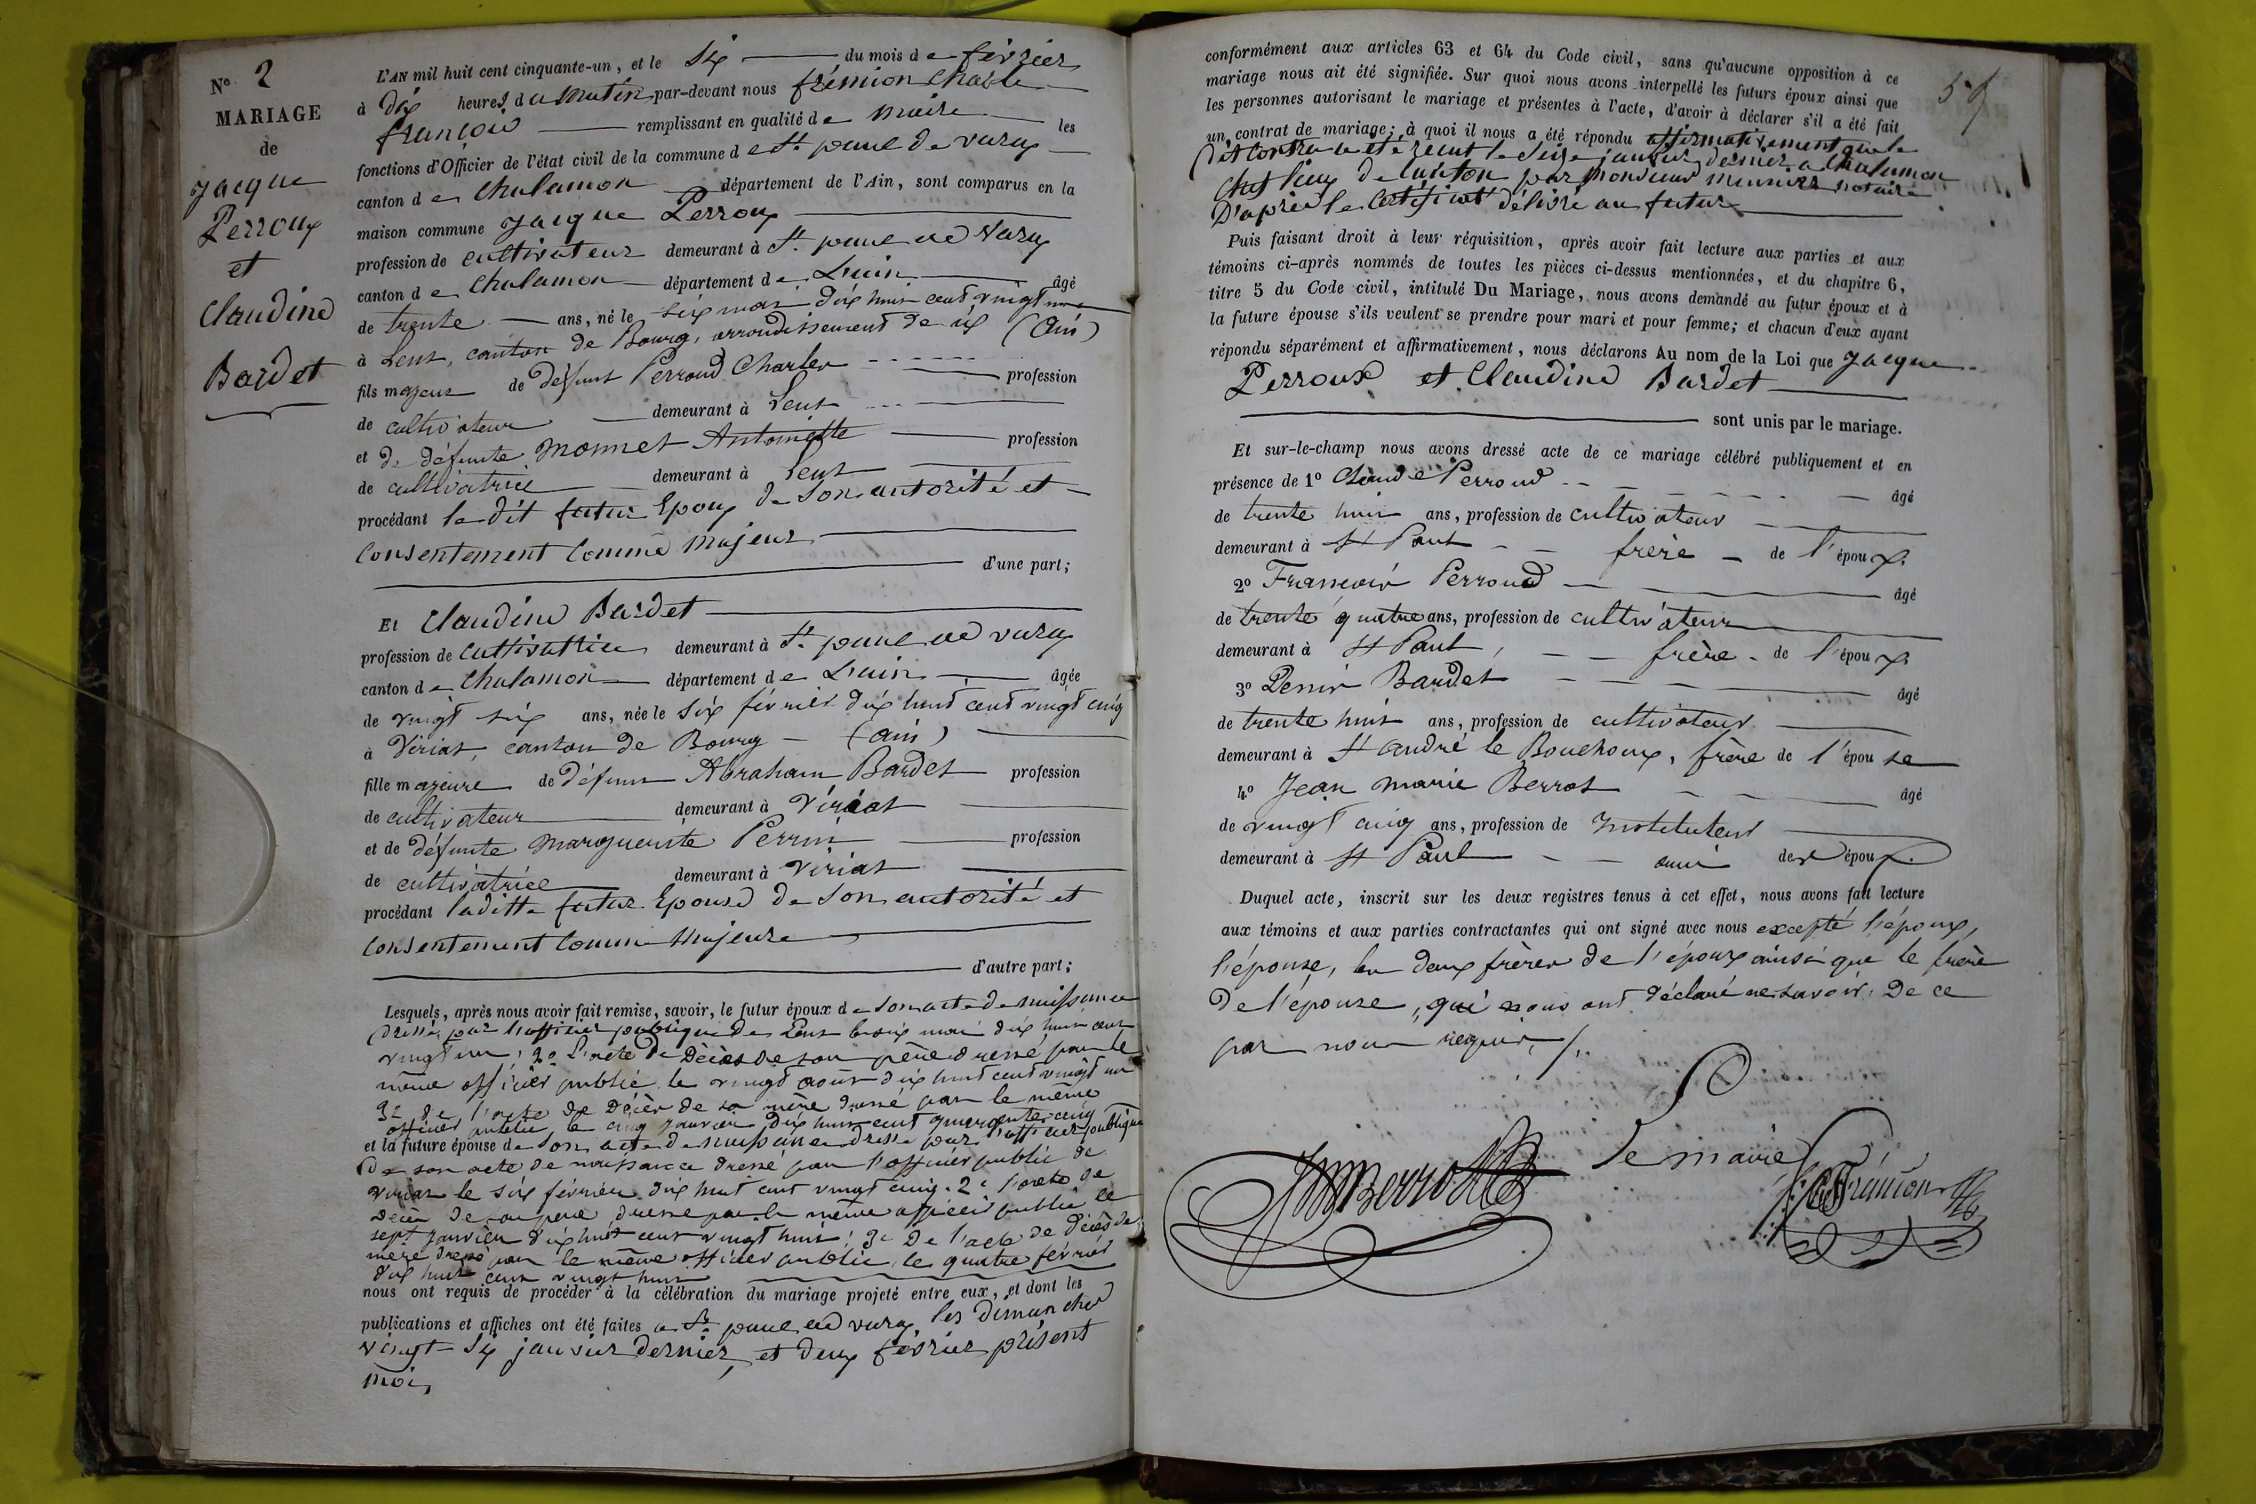 N° 2
MARIAGE
de
Jacque
Perroux
et
Claudine
Bardet
L'AN mil huit cent cinquante-un, et le Six du mois de février
à dix heures du Matin, par-devant nous frémion Charle
françois remplissant en qualité de maire les
fonctions d'Officier de l'état civil de la commune de St. paul de varax
canton de Chalamon département de l'Ain, sont comparus en la
maison commune Jacque Perroux
profession de cultivateur demeurant à St. paul de Varax
canton de Chalamon département de L'ain âgé
de trente ans, né le six mai dix huit cent vingt un
à Lent, canton de Bourg, arrondissement de (Ain)
fils majeur de défunt Perroud Charles profession
de cultivateur demeurant à Lent
et de défunte Monnet Antoinette profession
de cultivatrice demeurant à Lent
procédant le dit futur Epoux de Son autorité et
Consentement Comme Majeur
d'une part;
Et Claudine Bardet
profession de Cultivatrice demeurant à St. paul de varax
canton de Chalamon département de L'ain âgée
de vingt six ans, née le six février dix huit cent vingt cinq
à Viriat, canton de Bourg (ain)
fille majeure de défunt Abraham Bardet profession
de cultivateur demeurant à Viriat
et de défunte Marguerite Perrin profession
de cultivatrice demeurant à Viriat
procédant laditte futur Epouse de Son autorité et
Consentement Comme Majeure
d'autre part;
Lesquels, après nous avoir fait remise, savoir, le futur époux de Son acte de naissance
dressé par l'officier publique de Lent le six mai dix huit cent
vingt un; 2° L'acte de Décès de son père dressé par le
même officier public le vingt août dix huit cent vingt un
3° de l'acte de Décès de sa mère dressé par le même
officier public, le cinq janvier dix huit cent quarante cinq
et la future épouse de Son acte de naissance dressé par l'officier publique
De son acte de naissance dressé par l'officier public de
Viriat le six février dix huit cent vingt cinq. 2° l'acte de
Décès de son père dressé par le même officier public le
sept janvier dix huit cent vingt huit; 3° De l'acte de décès de
mère dressé par le même officier public, le quatre février
dix huit cent vingt huit
nous ont requis de procéder à la célébration du mariage projeté entre eux, et dont les
publications et affiches ont été faites a St. paul de varax les dimanches
vingt Six janvier dernier, et deux février présent
mois
conformément aux articles 63 et 64 du Code civil, sans qu'aucune opposition à ce
mariage nous ait été signifiée. Sur quoi nous avons interpellé les futurs époux ainsi que
les personnes autorisant le mariage et présentes à l'acte, d'avoir à déclarer s'il a été fait
un contrat de mariage; à quoi il nous a été répondu affirmativement que le
Dit Contra a été reçut le Seize janvier dernier a Chalamon
Chef lieux de Canton par Monsieur Meunier notaire
D'après le Certificat délivré au futur
Puis faisant droit à leur réquisition, après avoir fait lecture aux parties et aux
témoins ci-après nommés de toutes les pièces ci-dessus mentionnées, et du chapitre 6,
titre 5 du Code civil, intitulé Du Mariage, nous avons demandé au futur époux et à
la future épouse s'ils veulent se prendre pour mari et pour femme; et chacun d'eux ayant
répondu séparément et affirmativement, nous déclarons Au nom de la Loi que Jacque
Perroux et Claudine Bardet
sont unis par le mariage.
Et sur-le-champ nous avons dressé acte de ce mariage célébré publiquement et en
présence de 1° Claude Perroud âgé
de trente huit ans, profession de cultivateur
demeurant à St Paul frère de l'époux
2° François Perroud âgé
de trente quatre ans, profession de cultivateur
demeurant à St Paul, frère de l'époux
3° Denis Bardet âgé
de trente huit ans, profession de cultivateur
demeurant à St andré le Bouchoux, frère de l'épouse
4° Jean Marie Berrot âgé
de vingt cinq ans, profession de Instituteur
demeurant à St Paul ami des époux.
Duquel acte, inscrit sur les deux registres tenus à cet effet, nous avons fait lecture
aux témoins et aux parties contractantes qui ont signé avec nous excepté l'époux,
l'épouse, les deux frères de l'époux ainsi que le frère
De l'épouse, qui nous ont déclaré ne savoir, De ce
par nous requis /.
Le maire
JMBerrot
Frémion